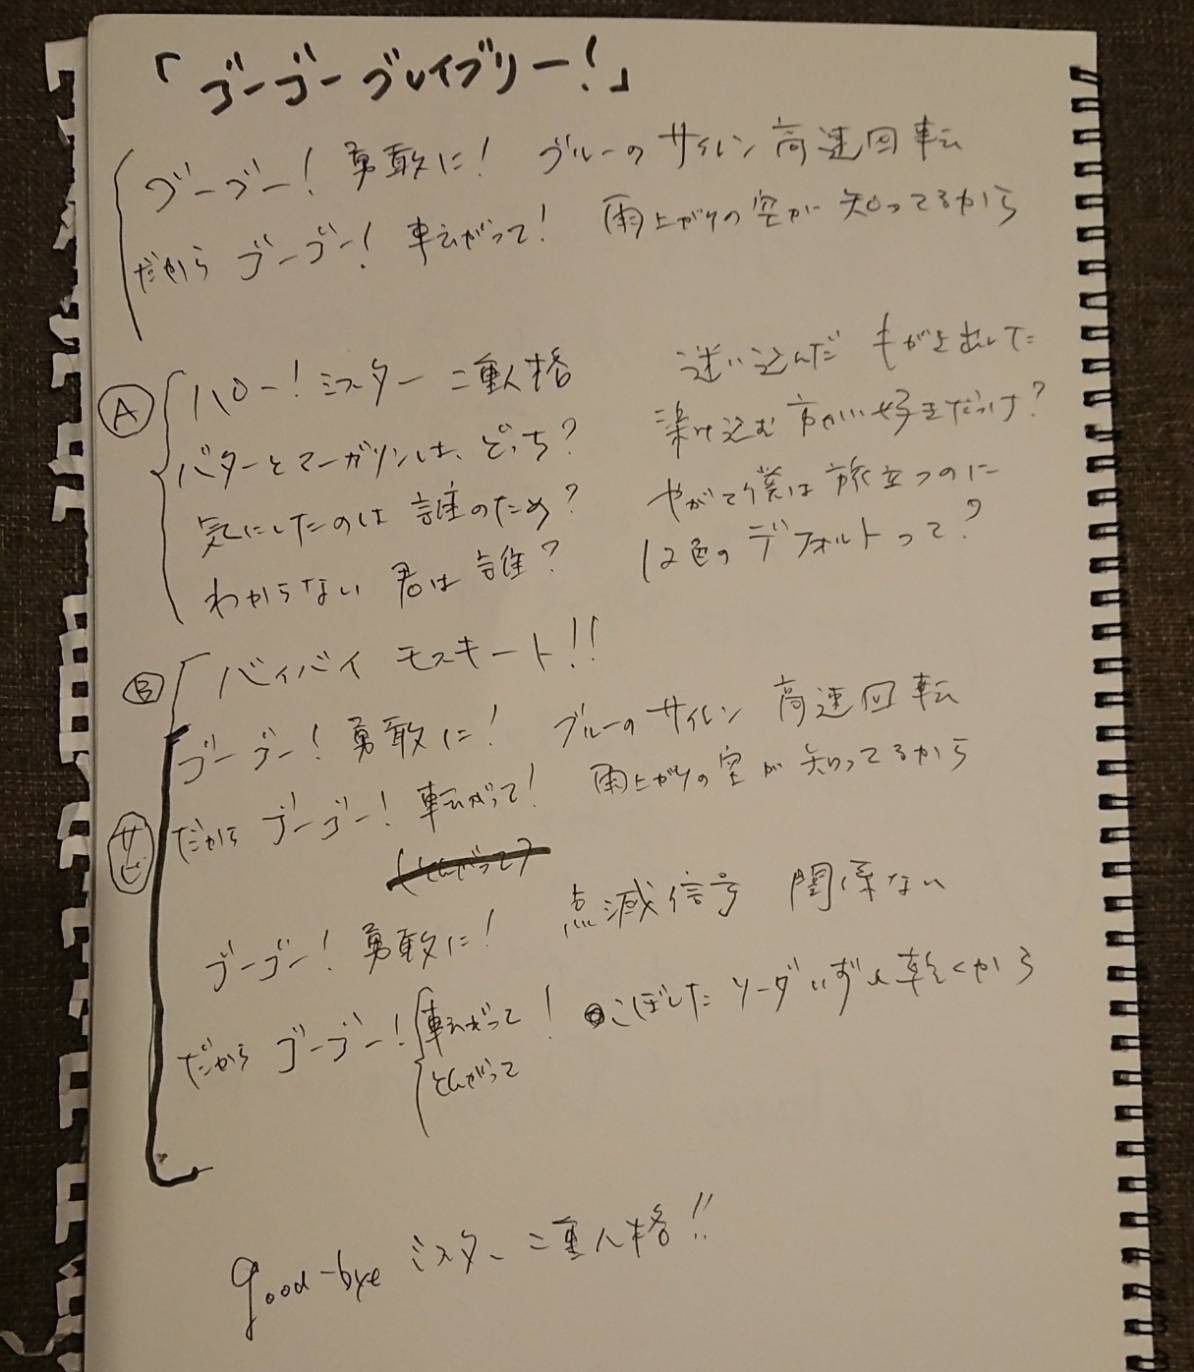 「ゴーゴーブレイブリー！」
ゴーゴー！勇敢に！ ブルーのサイレン 高速回転
だから ゴーゴー！ 転がって！ 雨上がりの空が 知ってるから
Ⓐ ハロー！ミスター 二重人格 迷い込んだ もがき出した
バターとマーガリンは、どっち？ 溶け込む方がいい好きだっけ？
気にしたのは 誰のため？ やがて僕は 旅立つのに
わからない 君は 誰？ 12色の デフォルトって？
Ⓑ バイバイ モスキート！！
サビ ゴーゴー！勇敢に！ ブルーのサイレン 高速回転
だから ゴーゴー！転がって！ 雨上がりの空が 知ってるから
(とんがって)
ゴーゴー！勇敢に！ 点滅信号 関係ない
だから ゴーゴー！ 転がって！ こぼした ソーダいずれ乾くから
とんがって
good-bye ミスター 二重人格！！